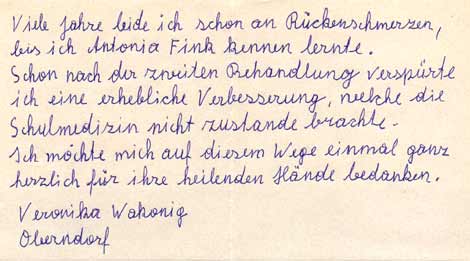 Viele Jahre leide ich schon an Rückenschmerzen,
bis ich Antonia Fink kennen lernte.
Schon nach der zweiten Behandlung verspürte
ich eine erhebliche Verbesserung, welche die
Schulmedizin nicht zustande brachte.
Ich möchte mich auf diesem Wege einmal ganz
herzlich für ihre heilenden Hände bedanken.
Veronika Wakonig
Oberndorf